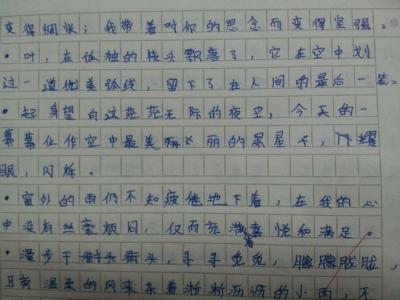 变得惆怅；我带着对你的思念而变得坚强。
·叶，在孤独的枝头飘落了，它在空中划
过一道优美弧线，留下了在人间的最后一
·起身望向这茫茫无际的夜空，今天的一
幕幕化作空中最美丽的星，耀
眼，闪烁。
·窗外的雨仍不知疲倦地下着，在我的心
中没有丝毫烦闷，反而充满着喜悦和满足。
·漫步于街头，寻寻觅觅，朦朦胧胧，
温柔的风夹杂着淅淅沥沥的小雨，不